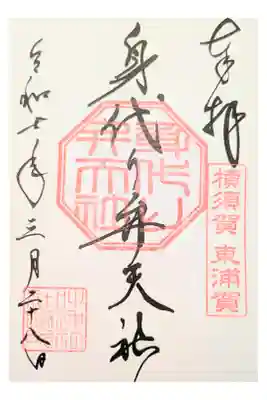 奉拝
横須賀 東浦賀
身代り弁天社
身代り弁天社
令和七年三月二十八日